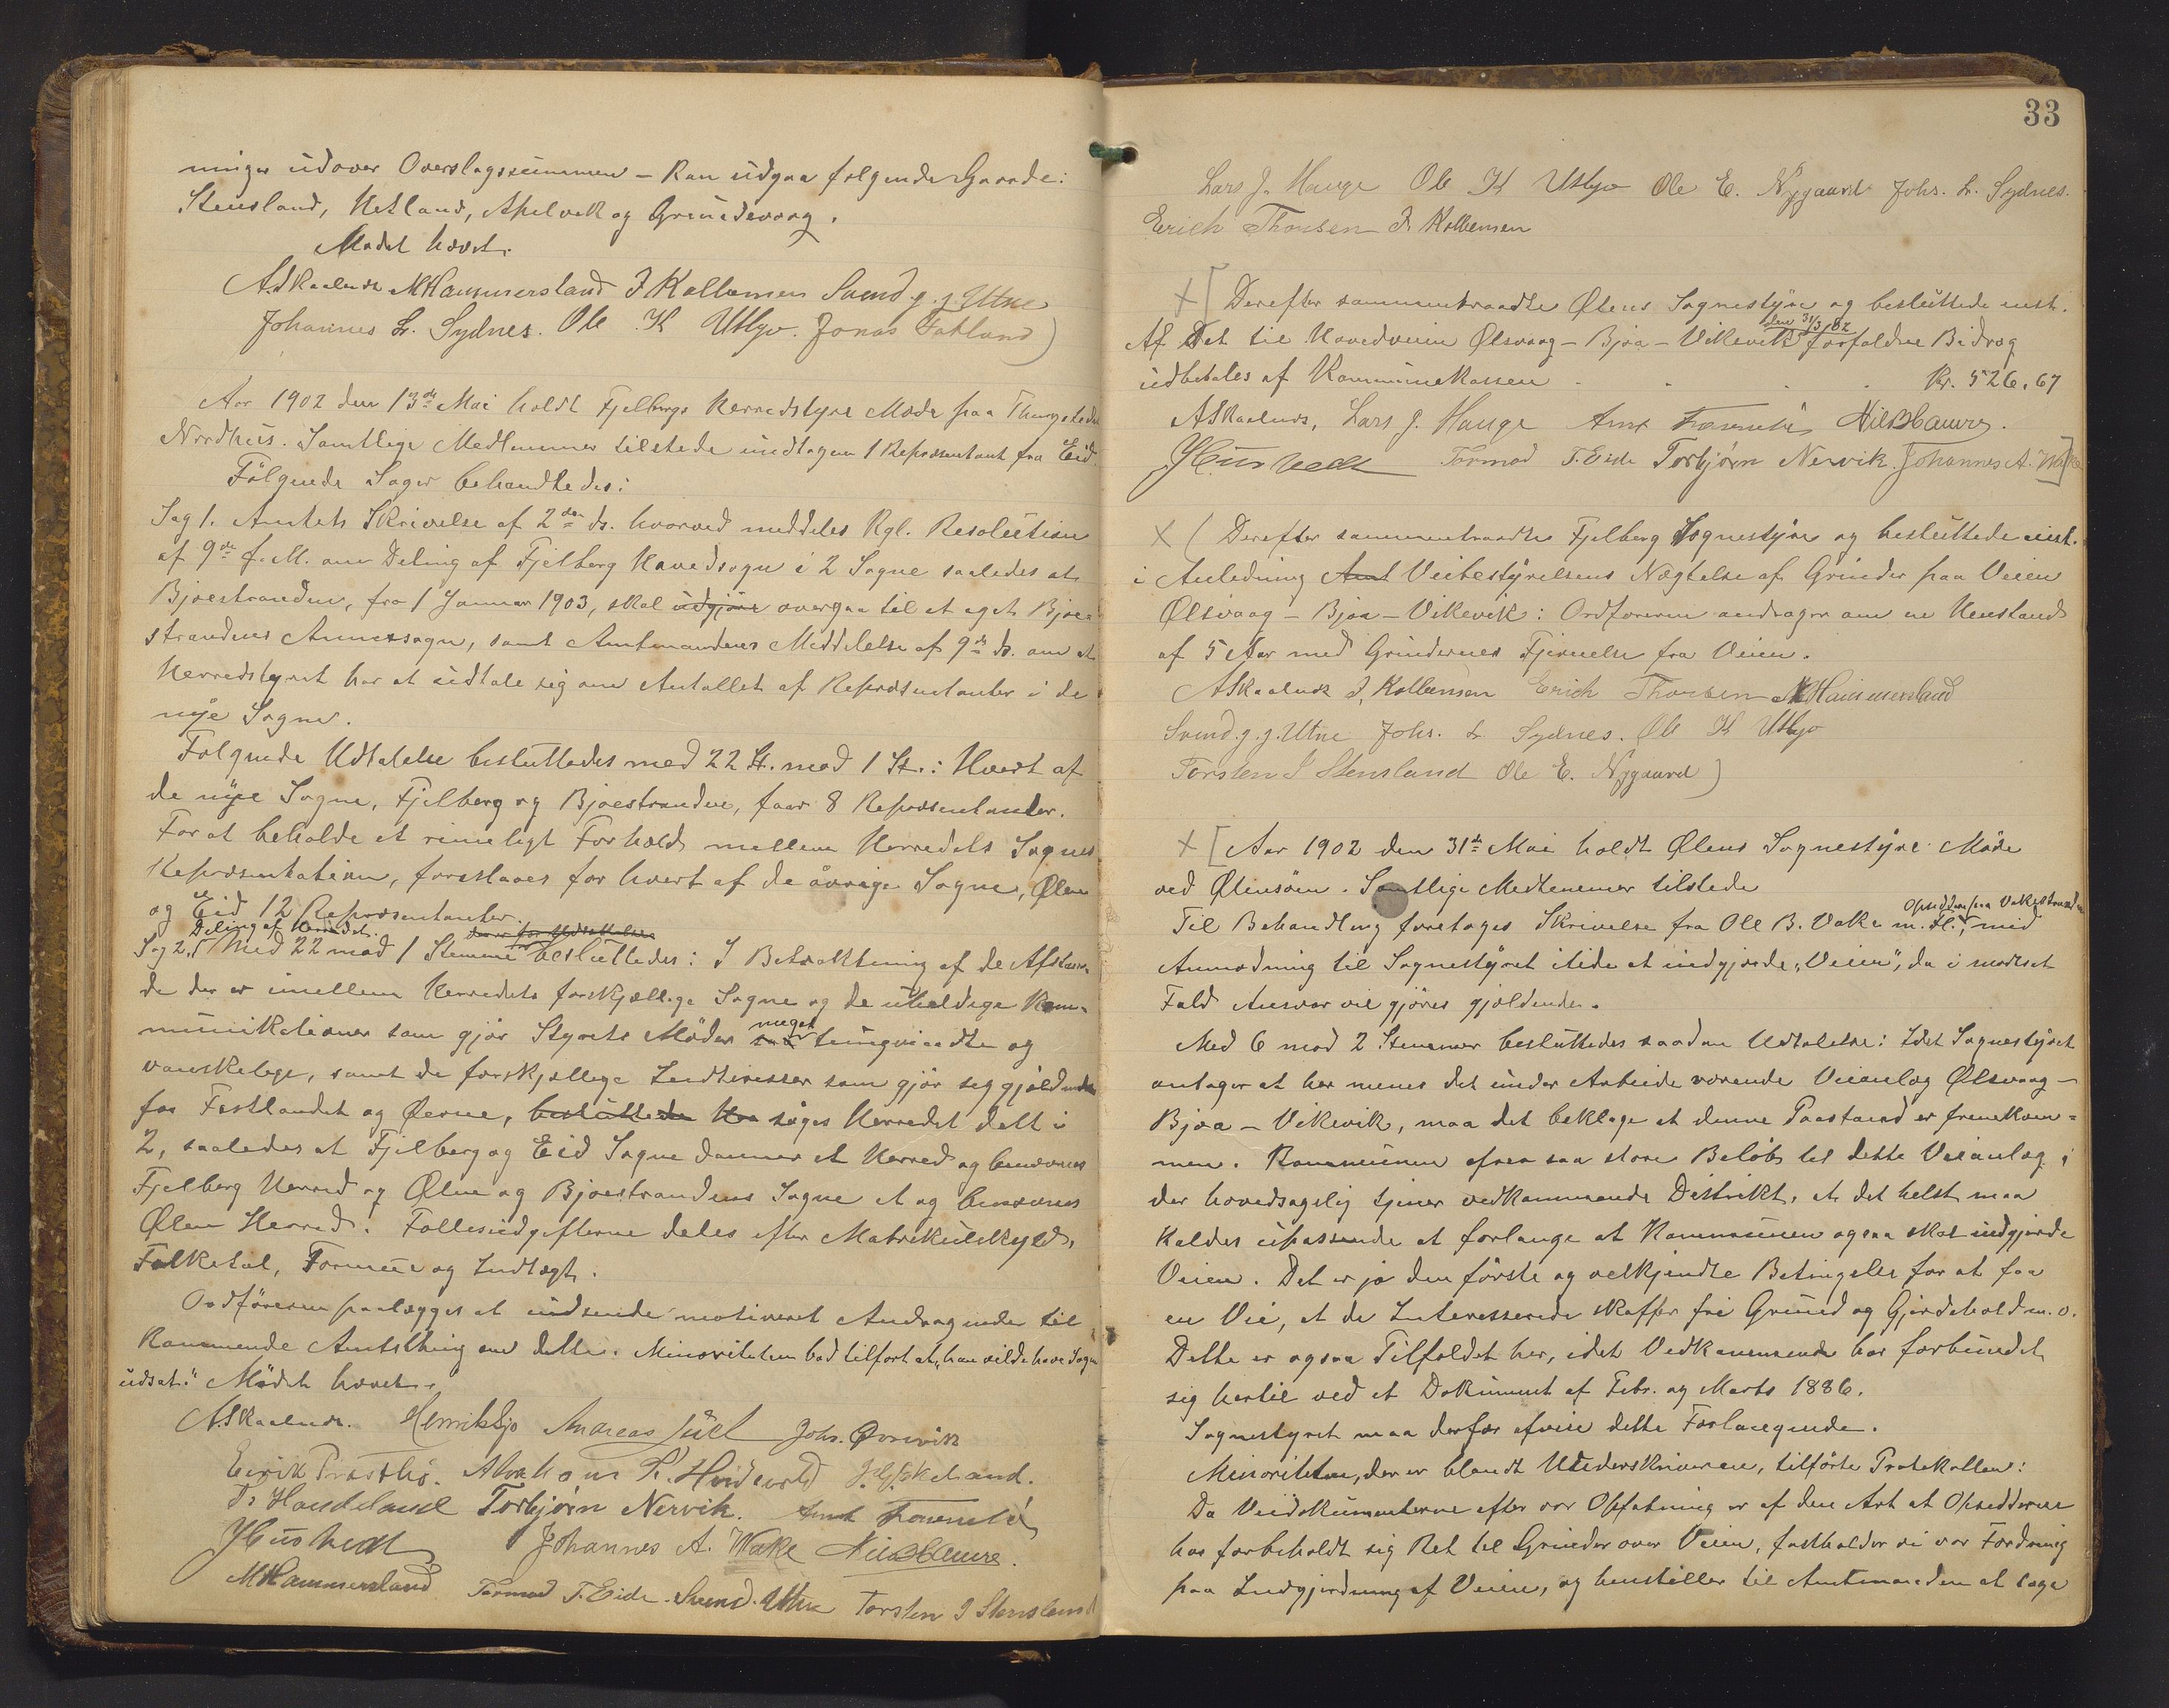 ninger udover Overslagssummen – kan udgaa følgende Gaarde:
Stensland, Uskland, Apelvik og Grinnevaag.
Mødet hævet.
A. Skaaluren M Hammersland I. Kolbensen Svend. J. J. Utne
Johannes L. Sydnes. Ole K Utbjo. Jonas Fatland)
Aar 1902 den 13de Mai holdt Fjelbergs Herredstyre Møde paa Thingstedet
Nordhus. Samtlige Medlemmer tilstede undtagen 1 Repræsentant fra Eid.
Følgende Sager behandledes:
Sag 1. Amtets Skrivelse af 2den ds. hvorved meddeles Kgl. Resolution
af 9de f. M. om Deling af Fjelberg Hovedsogn i 2 Sogne saaledes at
Bjoestranden, fra 1 Januar 1903, skal udgjøre overgaa til et eget Bjoe-
strandens Annexsogn, samt Amtmandens Meddelelse af 9de ds. om at
Herredstyret har at udtale sig om Antallet af Repræsentanter i de
nye Sogne.
Følgende Udtalelse besluttedes med 22 St. mod 1 St.: Hvert af
de nye Sogne, Fjelberg og Bjoestranden, faar 8 Repræsentanter.
For at beholde et rimeligt Forhold mellem Herredets Sognes
Repræsentation, foreslaaes for hvert af de øvrige Sogne, Ølen
og Eid 12 Repræsentanter.
Deling af Herredet. der er for Udsættelse
Sag 2. Med 22 mod 1 Stemme besluttedes: I Betraktning af de Afstan-
de der er imellem Herredets forskjællige Sogne og de uheldige Kom-
munikationer som gjør Styrets Møder saa meget tungvindte og
vanskelige, samt de forskjællige Indteresser som gjør sig gjældende
for Fastlandet og Øerne, besluttede Her søges Herredet delt i
2, saaledes at Fjelberg og Eid Sogne danner et Herred og benævnes
Fjelberg Herred og Ølen og Bjoestrandens Sogne et og benævnes
Ølen Herred. Fællesudgifterne deles efter Matrikulskyld,
Folketal, Formue og Indtægt.
Ordføreren paalægges at indsende motiveret Andragende til
kommende Amtsthing om dette. Minoriteten bad tilført at „han vilde have Sagen
udsat." Mødet hævet.
A. Skaaluren. Henrik Sjo Andreas Juel Johs. Øvrevik
Eirik Præstbø. Abraham P. Hvidevold
Torbjørn Nervik.
J Husvedt Johannes A. Wake
M Hammersland Tormod T. Eide. Svend. Utne Torsten I Stensland
33
Lars J. Hauge Ole K Utbjo Ole E. Nygaard Johs. L. Sydnes.
Erich Thorsen I. Kolbensen
X [ Derefter sammentraadte Ølens Sognestyre og besluttede enst.
den 31/3 02
At Det til Hovedveien Ølsvaag – Bjoa – Vikevik forfaldne Bidrag
udbetales af Kommunekassen Kr. 526,67
A Skaaluren, Lars J. Hauge
J Husvedt Tormod T. Eide Torbjørn Nervik. Johannes A. Wake]
X ( Derefter sammentraadte Fjelberg Sognestyre og besluttede enst.
i Anledning Amt Veibestyrelsens Nægtelse af Grinder paa Veien
Ølsvaag – Bjoa – Vikevik: Ordføreren andrager om en Henstand
af 5 Aar med Grindernes Fjernelse fra Veien.
A Skaaluren I. Kolbensen Erich Thorsen M Hammersland
Svend. J. J. Utne Johs. L Sydnes. Ole K Utbjo
Torsten I Stensland Ole E. Nygaard)
X [ Aar 1902 den 31te Mai holdt Ølens Sognestyre Møde
ved Ølensøen. Samtlige Medlemmer tilstede
Opsiddere paa Vakestranden
Til Behandling foretoges Skrivelse fra Ole B. Vaka m. fl., med
Anmodning til Sognestyret itide at indgjærde „Veien", da i modsat
Fald Ansvar vil gjøres gjældende.
Med 6 mod 2 Stemmer besluttedes saadan Udtalelse: Idet Sognestyret
antager at her menes det under Arbeide værende Veianlæg Ølsvaag –
Bjoa – Vikevik, maa det beklage at denne Paastand er fremkom-
men. Kommunen ofrer saa store Beløb til dette Veianlæg,
der hovedsagelig tjener vedkommende Distrikt, at det helst maa
kaldes upassende at forlange at Kommunen ogsaa skal indgjærde
Veien. Det er jo den første og velkjendte Betingelse for at faa
en Vei, at de Interesserede skaffer fri Grund og Gjerdehold m. v.
Dette er ogsaa Tilfældet her, idet Vedkommende har forbundet
sig hertil ved et Dokument af Febr. og Marts 1886.
Sognestyret maa derfor afvise dette Forlangende.
Minoriteten, der er blandt Underskriverne, tilførte Protokollen:
Da Veidokumenterne efter vor Opfatning er af den Art at Opsidderne
har forbeholdt sig Ret til Grinder over Veien, fastholder vi vor Fordring
paa Indgjerdning af Veien, og henstiller til Amtmanden at tage